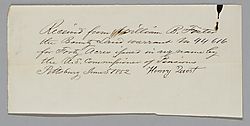 Received from William B. Foster
the Bounty Land warrant No 94616
for Forty Acres issued in my name by
the U.S. Commissioner of Pensions
Pittsburg June 5 1852 Henry